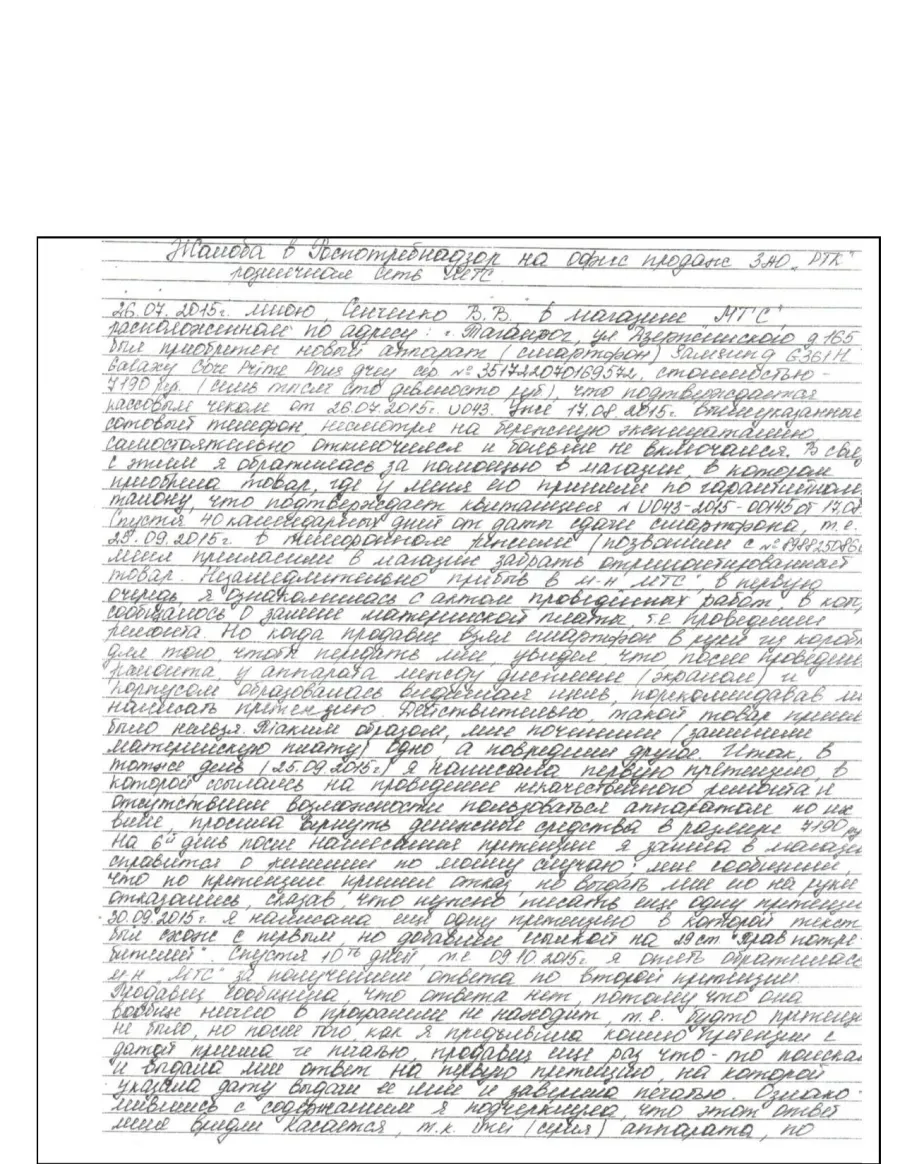 Жалоба в Роспотребнадзор на офис продаж ЗАО „РТК"
розничная сеть МТС.
26.07.2015г. мною, Сенченко В.В. в магазине „МТС",
расположенном по адресу: г. Таганрог, ул Дзержинского д 165
был приобретен новый аппарат (смартфон) Samsung G361H
Galaxy Core Prime Duos grey с/о № 351722070169572, стоимостью -
7190 руб. (семь тысяч сто девяносто руб), что подтверждается
кассовым чеком от 26.07.2015г. U043. Уже 17.08.2015г. вышеуказанный
сотовый телефон, несмотря на бережную эксплуатацию
самостоятельно отключился и больше не включался. В связ
с этим я обратилась за помощью в магазин, в котором
приобрела товар, где у меня его приняли по гарантийном
талону, что подтверждает квитанция № U043-2015-00145 от 17.08
Спустя 40 календарных дней от даты сдачи смартфона, т.е.
25.09.2015г в телефонном режиме (позвонили с №
меня пригласили в магазин забрать отремонтированный
товар. Незамедлительно прибыв в м-н „МТС", в первую
очередь, я ознакомилась с актом проведённых работ, в кот
сообщалось о замене материнской платы, т.е. проведении
ремонта. Но когда продавец взял смартфон в руки из коробк
для того чтобы передать мне, увидел, что, после проведени
ремонта, у аппарата между дисплеем (экраном) и
корпусом образовалась видимая щель, порекомендовав м
написать претензию. Действительно, такой товар приним
было нельзя. Таким образом, мне починили (заменили
материнскую плату) одно, а повредили другое. Итак, в
тот же день (25.09.2015г.) я написала первую претензию, в
которой ссылаясь на проведение некачественного ремонта и
отсутствием возможности пользоваться аппаратом по их
вине просила вернуть денежные средства в размере 7190 ру
На 6й день после написания претензии я зашла в магазин
справится о решении по моему случаю, мне сообщили,
что по претензии пришел отказ, но выдать мне его на руки
отказались, сказав, что нужно писать еще одну претензи
30.09.2015г. я написала ещё одну претензию в которой текст
был схож с первым, но добавлен ссылкой на 19 ст. "Прав потре-
бителей". Спустя 10ть дней, т.е 09.10.2015г. я опять обратилась
м-н „МТС" за получением ответа по второй претензии.
Продавец сообщила, что ответа нет, потому что она
вообще ничего в программе не находит, т.е. будто претензи
не было, но после того, как я предъявила копию претензии с
датой приема и печатью, продавец еще раз что-то поискал
и выдала мне ответ на первую претензию, на которой
указала дату выдачи ее мне и заверила печатью. Ознако-
мившись с содержанием я подчеркнула, что этот ответ
меня вряд ли касается, т.к. imei (серия) аппарата, по